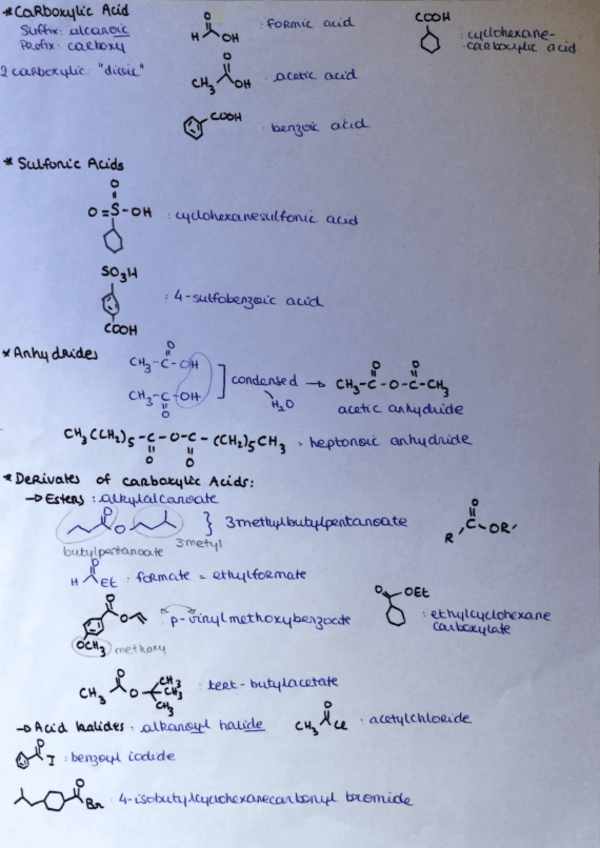 *Carboxylic Acid
Suffix: alcanoic
Prefix: carboxy
2 carboxylic: "dioic"
O
H OH : formic acid
COOH : cyclohexane-
carboxylic acid
O
CH3 OH : acetic acid
COOH : benzoic acid
* Sulfonic Acids
O
O=S-OH : cyclohexanesulfonic acid
SO3H
: 4-sulfobenzoic acid
COOH
*Anhydrides
O
CH3-C-OH
CH3-C-OH
O
] condensed →
H2O
O O
CH3-C-O-C-CH3
acetic anhydride
CH3(CH2)5-C-O-C-(CH2)5CH3 : heptonoic anhydride
O O
*Derivates of carboxylic Acids:
→Esters: alkylalcanoate
O
O } 3methylbutylpentanoate
butylpentanoate 3metyl
O
R C-OR'
O
H Et : formate = ethylformate
O
O : p-vinylmethoxybenzoate
OCH3 methoxy
O OEt : ethylcyclohexane
carboxylate
O
CH3 O CH3 CH3 CH3 : tert-butylacetate
→Acid halides: alkanoyl halide
O
CH3 Cl : acetylchloride
O
I : benzoyl iodide
O
Br : 4-isobutylcyclohexanecarbonyl bromide